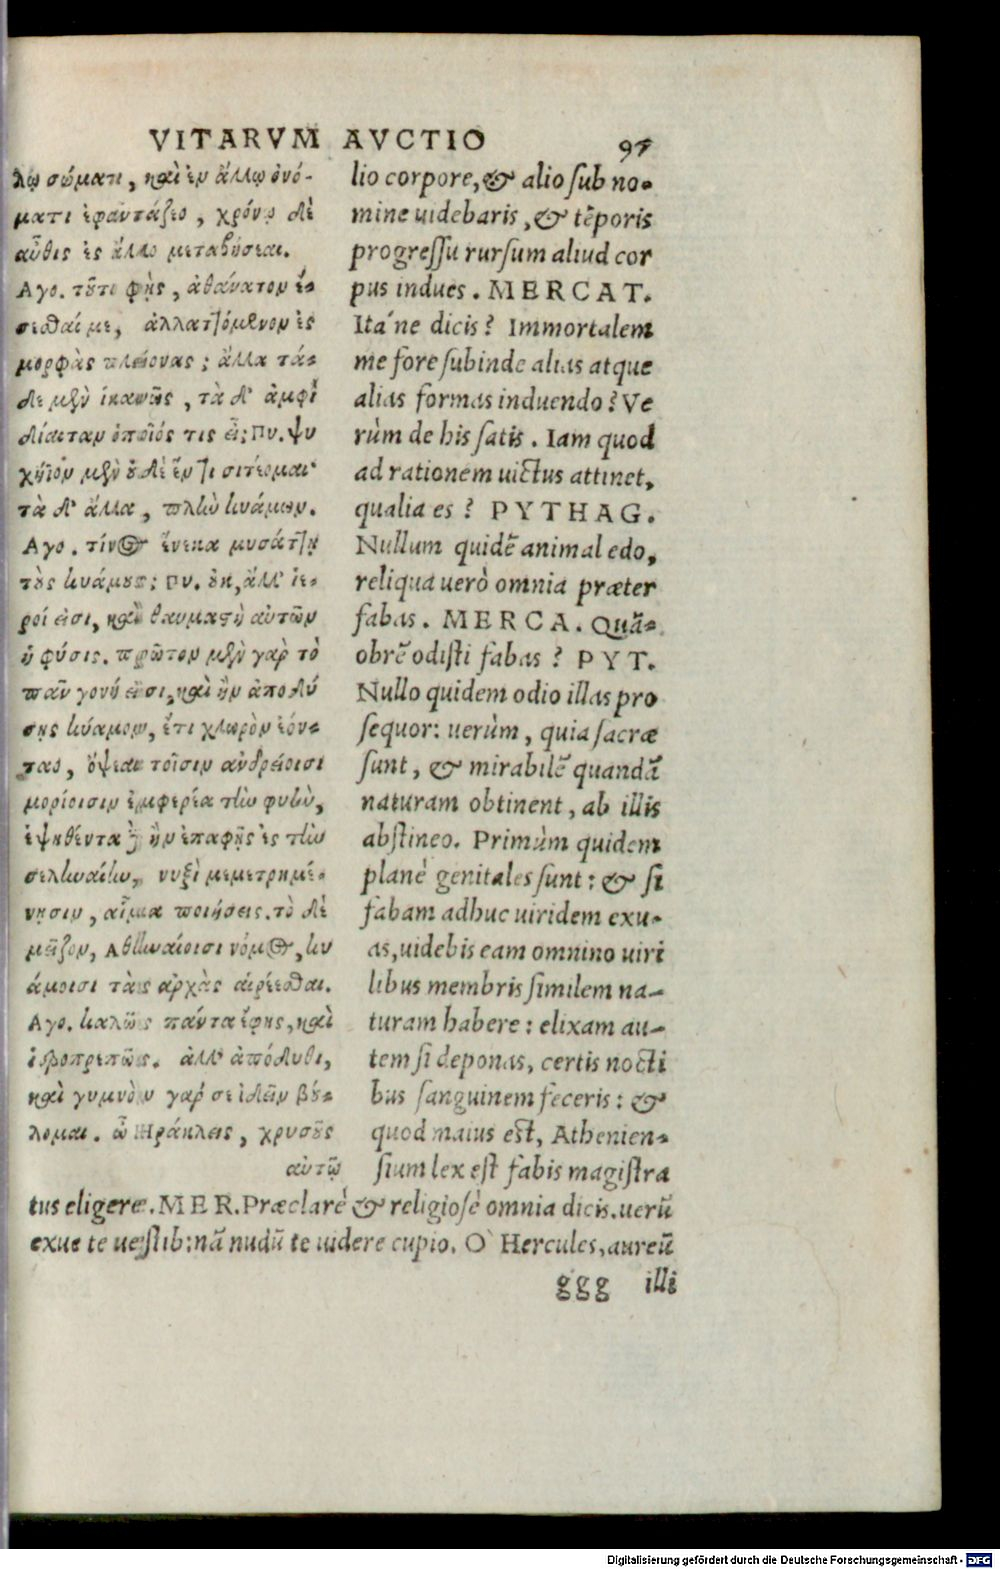 VITARVM AVCTIO 95
λῳ σώματι, καὶ ἐν ἄλλῳ ὀνό-
ματι ἐφαντάζεο, χρόνῳ δὲ
αὖθις ἐς ἄλλο μεταβήσεαι.
Αγο. τοῦτο φῂς, ἀθάνατον ἔ-
σεσθαί με, ἀλλαττόμενον ἐς
μορφὰς πλείονας; ἀλλα τά-
δε μὲν ἱκανῶς, τὰ δ' ἀμφὶ
δίαιταν ὁποῖός τις εἶ; Πυ. ἐμψυ
χήϊον μὲν οὐδὲ ἕν τι σιτέομαι·
τὰ δ' ἄλλα, πλὴν κυάμων.
Αγο. τίνος ἕνεκα μυσάττῃ
τοὺς κυάμους; Πυ. οὐκ, ἀλλ' ἱε-
ροί εἰσι, καὶ θαυμαστὴ αὐτῶν
ἡ φύσις. πρῶτον μὲν γὰρ τὸ
πᾶν γονή εἰσι, καὶ ἢν ἀπολύ
σῃς κύαμον, ἔτι χλωρὸν ἐόν-
ταο, ὄψεαι τοῖσιν ἀνδρείοισι
μορίοισιν ἐμφερέα τὴν φυὴν,
ἑψηθέντα δὲ ἢν ἐπαφῇς ἐς τὴν
σεληναίην, νυξὶ μεμετρημέ-
νῃσιν, αἷμα ποιήσεις. τὸ δὲ
μεῖζον, Αθηναίοισι νόμος, κυ
άμοισι τὰς ἀρχὰς αἱρέεσθαι.
Αγο. καλῶς πάντα ἔφης, καὶ
ἱεροπρεπῶς. ἀλλ' ἀπόδυθι,
καὶ γυμνὸν γάρ σε ἰδεῖν βού-
λομαι. ὦ Ηράκλεις, χρυσοῦς
αὐτῷ
lio corpore, & alio sub no-
mine uidebaris, & tēporis
progressu rursum aliud cor
pus indues. MERCAT.
Ita'ne dicis? Immortalem
me fore subinde alias atque
alias formas induendo? Ve
rùm de his satis. Iam quod
ad rationem uictus attinet,
qualia es? PYTHAG.
Nullum quidē animal edo,
reliqua uerò omnia præter
fabas. MERCA. Quā-
obrē odisti fabas? PYT.
Nullo quidem odio illas pro
sequor: uerùm, quia sacræ
sunt, & mirabilē quandā
naturam obtinent, ab illis
abstineo. Primùm quidem
planè genitales sunt: & si
fabam adhuc uiridem exu-
as, uidebis eam omnino uiri
libus membris similem na-
turam habere: elixam au-
tem si deponas, certis nocti
bus sanguinem feceris: &
quod maius est, Athenien-
sium lex est fabis magistra
tus eligere. MER. Præclarè & religiosè omnia dicis. uerū
exue te uestib: nā nudū te uidere cupio. O' Hercules, aureū
ggg illi
Digitalisierung gefördert durch die Deutsche Forschungsgemeinschaft - DFG